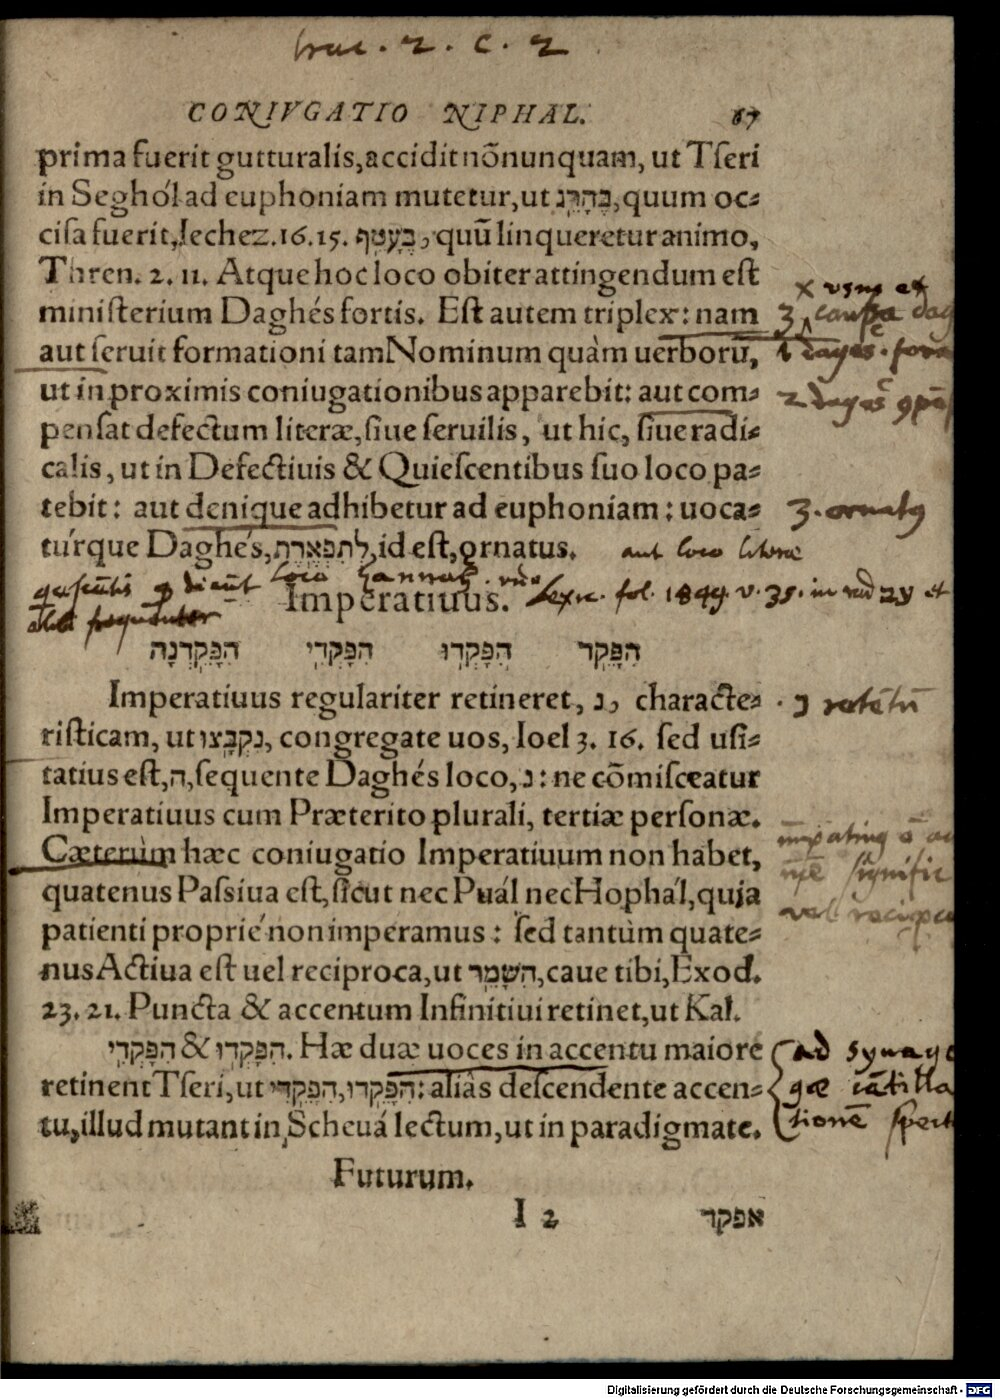 CONIVGATIO NIPHAL. 67
prima fuerit gutturalis, accidit nõnunquam, ut Tseri
in Seghól ad euphoniam mutetur, ut בֶּהָרֵג, quum oc=
cisa fuerit, Iechez. 16. 15. בֶּעָטֵף, quũ linqueretur animo,
Thren. 2. 11. Atque hoc loco obiter attingendum est
ministerium Daghés fortis. Est autem triplex: nam
aut seruit formationi tam Nominum quàm uerborũ,
ut in proximis coniugationibus apparebit: aut com=
pensat defectum literæ, siue seruilis, ut hic, siue radi=
calis, ut in Defectiuis & Quiescentibus suo loco pa=
tebit: aut denique adhibetur ad euphoniam: uoca=
túrque Daghés, לתפארת, id est, ornatus.
aut loco literae
Imperatiuus.
הִפָּקֵד הִפָּקְדוּ הִפָּקְדִי הִפָּקֵדְנָה
Imperatiuus regulariter retineret, נ, characte=
risticam, ut נִקְבְּצוּ, congregate uos, Ioel 3. 16. sed usi=
tatius est, ה, sequente Daghés loco, נ: ne cõmisceatur
Imperatiuus cum Præterito plurali, tertiæ personæ.
Cæterùm hæc coniugatio Imperatiuum non habet,
quatenus Passiua est, sicut nec Puál nec Hophál, quia
patienti proprié non imperamus: sed tantùm quate=
nus Actiua est uel reciproca, ut הִשָּׁמֵר, caue tibi, Exod.
23. 21. Puncta & accentum Infinitiui retinet, ut Kal.
הִפָּקְדִי & הִפָּקְדוּ. Hæ duæ uoces in accentu maiore
retinent Tseri, ut הִפָּקֵדוּ, הִפָּקֵדִי: aliàs descendente accen=
tu, illud mutant in Scheuá lectum, ut in paradigmate.
Futurum.
I 2 אפקד
3. ornatus
ad synago
gæ
tionē
Digitalisierung gefördert durch die Deutsche Forschungsgemeinschaft - DFG